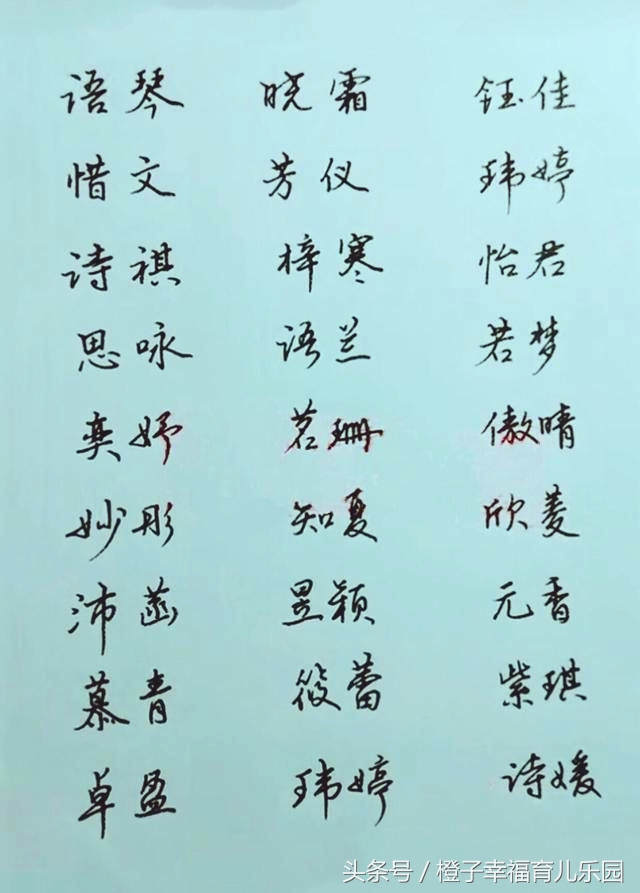 语琴 晓霜 钰佳
惜文 芳仪 玮婷
诗祺 梓寒 怡君
思咏 语兰 若梦
奕妤 茗珊 傲晴
妙彤 知夏 欣菱
沛菡 昱颖 元香
慕青 筱蕾 紫琪
卓盈 玮婷 诗媛
头条号/橙子幸福育儿乐园